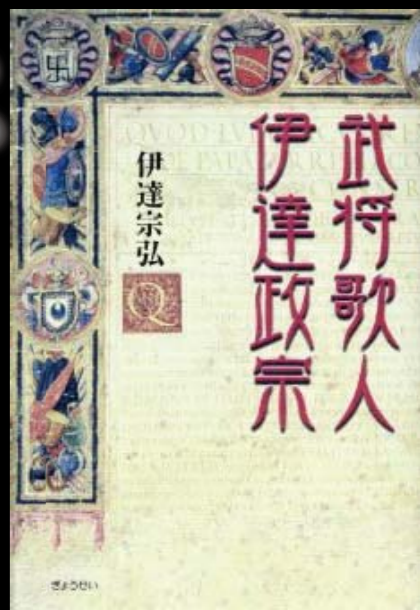 武将歌人
伊達政宗
伊達宗弘
Q
ぎょうせい